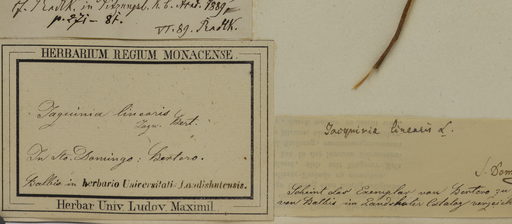 cf. Radlk. in Sitzungsb. k. b. Akad. 1889
p. 271-81.
VI. 89. Radlk.
HERBARIUM REGIUM MONACENSE.
Jaquinia linearis
Jaqu. Bert.
In Sto. Domingo: Bertero.
Balbis in herbario Universitati Landishutensis.
Herbar. Univ. Ludov. Maximil.
Jacquinia linearis L.
S. Dom
Scheint das Exemplar von Bertero zu
von Balbis in Landshuter Catalog verzeich